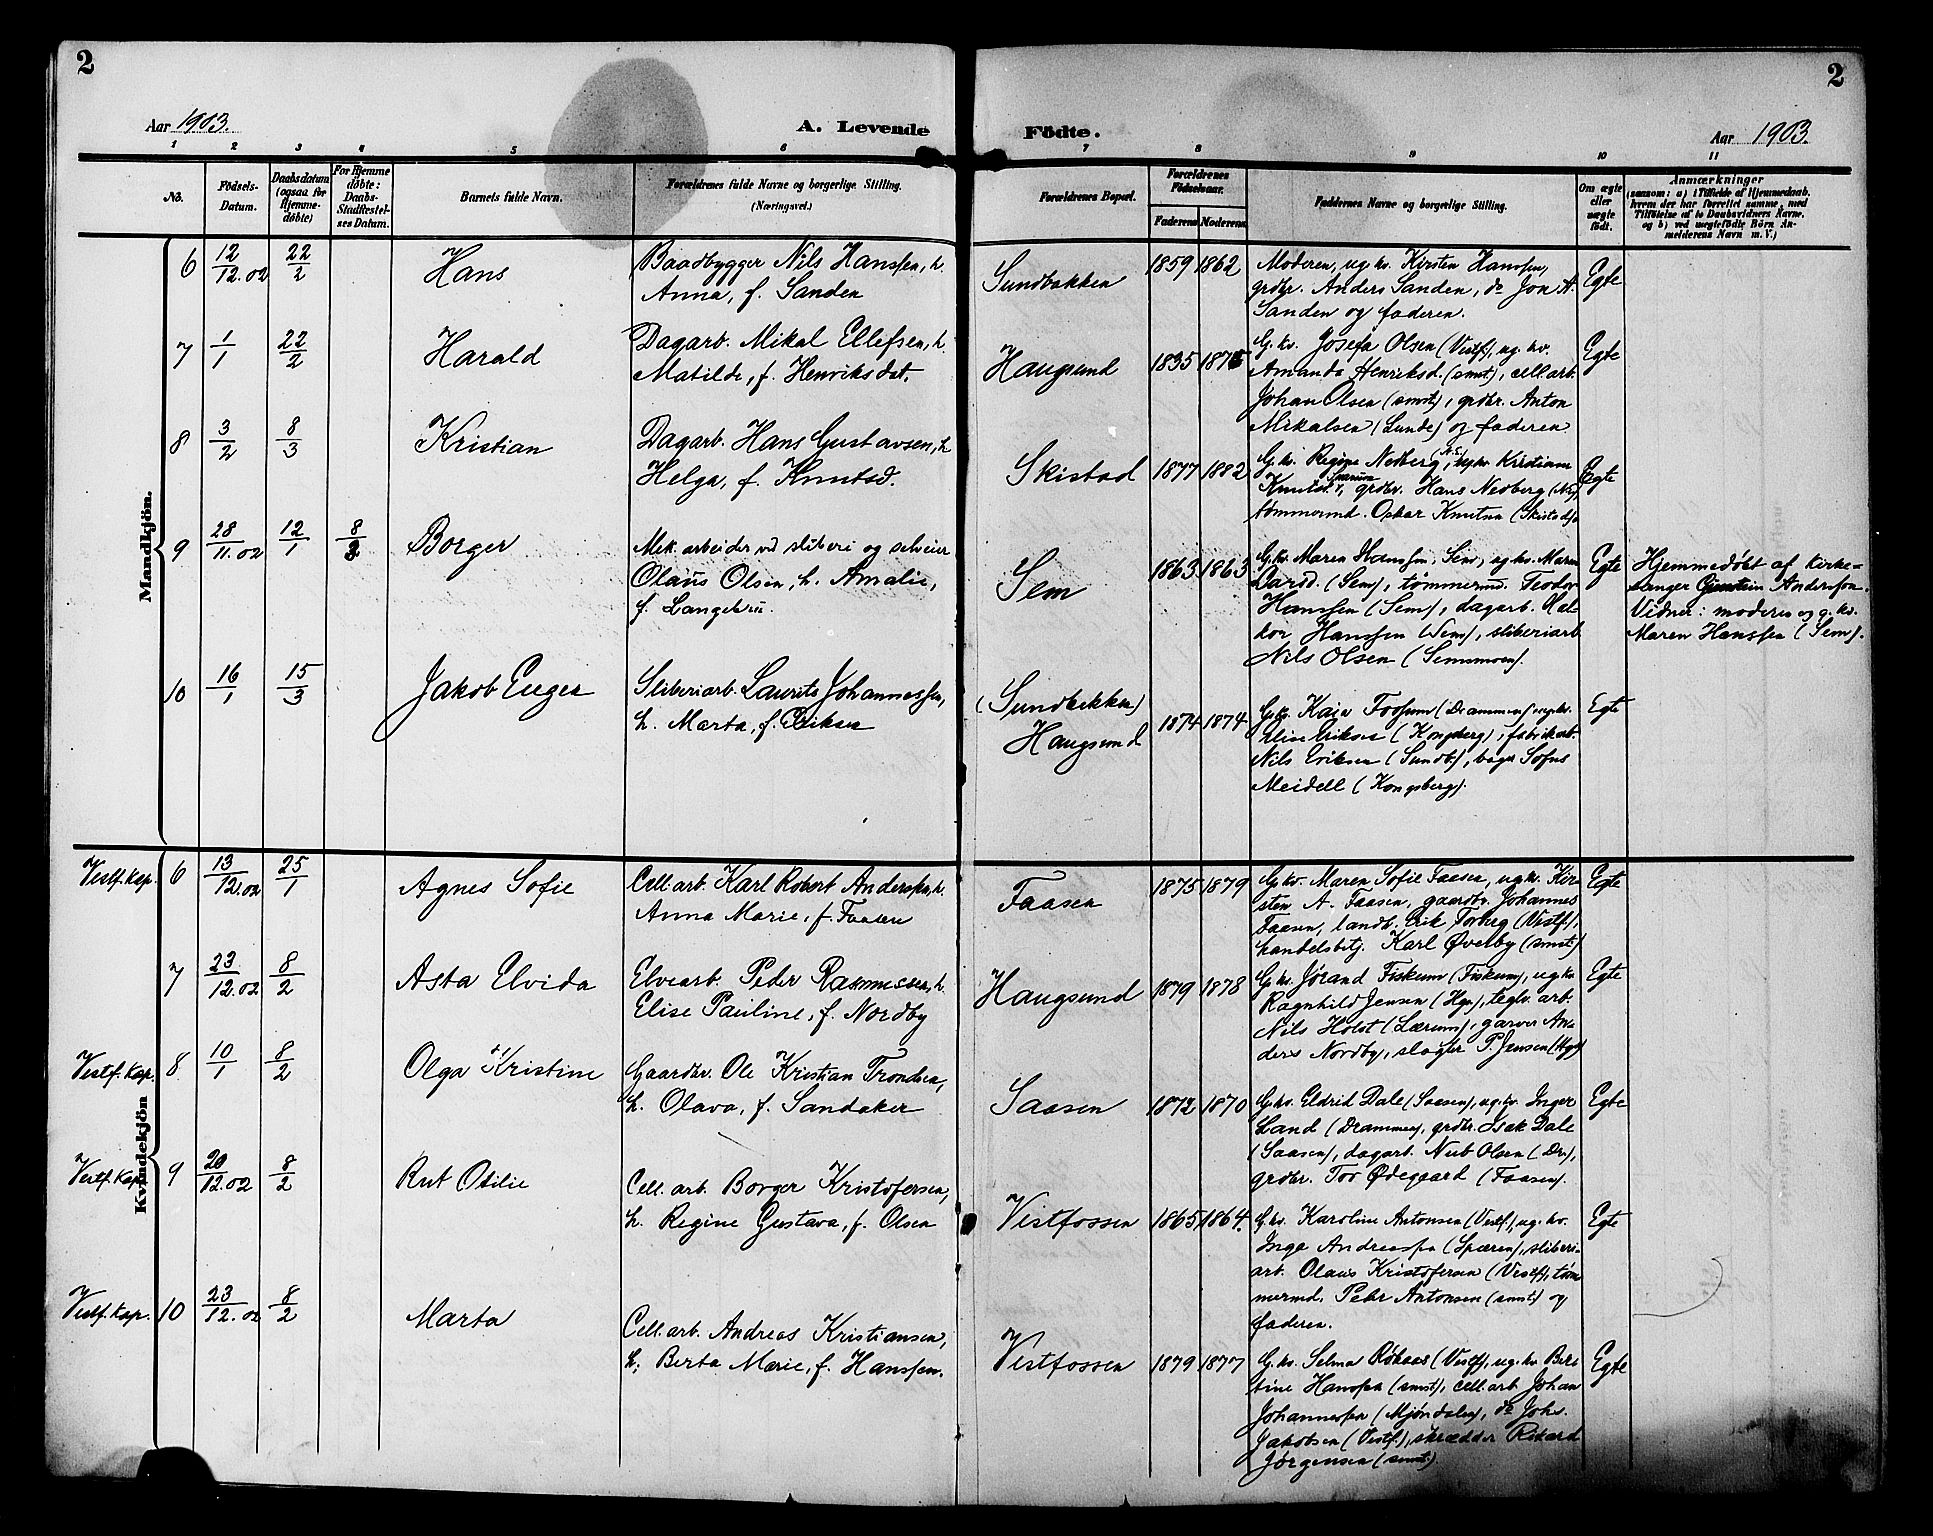 2
2
Aar 1903.
A. Levende Födte.
Aar 1903.
1 2 3 4 5 6 7 8 9 10 11
No.
Födsels-Datum.
Daabsdatum (ogsaa for Hjemmedöbte)
For Hjemmedöbte: Daabs-Stadfæstelses Datum.
Barnets fulde Navn.
Forældrenes fulde Navne og borgerlige Stilling.
(Næringsvei.)
Forældrenes Bopæl.
Forældrenes Födselsaar.
Faderens Moderens
Faddernes Navne og borgerlige Stilling.
Om ægte eller uægte födt.
Anmærkninger
(saasom: a) i Tilfælde af Hjemmedaab, hvem der har forrettet samme, med Tilföielse af to Daabsvidners Navne, og b) ved uegtefödte Börn Anmelderens Navn m. V.)
Mandkjön.
6 12/12.02 22/2 Hans
Baadbygger Nils Hanssen, h.
Anna, f. Sanden
Sundbakken 1859 1862
Moderen, ug. kv. Kirsten Hanssen,
grdbr. Anders Sanden, do Jon A.
Sanden og faderen.
Egte
7 1/1 22/2 Harald
Dagarb. Mikal Ellefsen, h.
Matilde, f. Henriksdat.
Haugsund 1835
G. kv. Josefa Olsen (Vestf), ug. kv.
Amanda Henriksd. (smst.), cell. arb.
Johan Olsen (smst), grdbr. Anton
Mikalsen (Lunde) og faderen
Egte
8 3/2 8/3 Kristian
Dagarb. Hans Gustavsen, h
Helga, f. Knutsd.
Skistad 1877 1882
G. kv. Regine Nedberg, ug. kv. Kristiane
Knutsd., grdbr. Hans Nedberg
tømmermd. Oskar Knutsen (Skistad).
Egte
9 28/11.02 12/1 8/3 Borger
Mek. arbeider ved sliberi og selveier
Olaus Olsen, h. Amalie,
f. Langebru.
Sem 1863 1863
G. kv. Maren Hanssen, Sem, ug. kv. Maren
(Sem), tømmermd. Teodor
Hanssen (Sem), dagarb. Hal-
Hanssen (Sem), sliberiarb
Nils Olsen (Semsmoen).
Egte
Hjemmedøbt af kirke-
sanger Anderssen.
Vidner: moderen og g. kv.
Maren Hanssen (Sem).
10 16/1 15/3 Jakob Euger
Sliberiarb. Laurits Johannessen,
h. Marta, f. Eriksen
(Sundbakken)
Haugsund 1874 1874
G. kv. Kaia Fossum (Drammen) ug. kv.
Elise Eriksen (Kongsberg), fabrikarb.
Nils Eriksen (Sundb), bager Sofus
Meidell (Kongsberg).
Egte
Kvindekjön
Vestf. kap. 6 13/12.02 25/1 Agnes Sofie
Cell. arb. Karl Robert Anderssen, h.
Anna Marie, f. Faasen
Faasen 1875 1879
G. kv. Maren Sofie Faasen, ug. kv. Kir-
sten A. Faasen, gaardbr. Johannes
Faasen, landh. Erik Torberg (Vestf),
handelsbetj. Karl Øverby (smst.)
Egte
7 23/12.02 8/2 Asta Elvida
Elvearb. Peder Rasmussen, h.
Elise Pauline, f. Nordby
Haugsund 1879 1878
G. kv. Jørand Fiskum (Fiskum), ug. kv
Ragnhild Jensen (Hgs), teglv. arb.
Nils Holst (Lærum), garver An-
ders Nordby, slagter P. Jensen (Hgs)
Egte
Vestf. kap. 8 10/1 8/2 Olga Kristine
Gaardbr. Ole Kristian Trondsen,
h. Olava, f. Sandaker
Saasen 1872 1870
G. kv. Eldrid Dale (Saasen), ug. kv. Inger
Land (Drammen), grdbr. Isak Dale
(Saasen), dagarb. Nub Olsen (Dr),
grdbr. Tor Ødegaard (Faasen).
Egte
Vestf. kap. 9 20/12.02 8/2 Rut Otilie
Cell. arb. Borger Kristofersen,
h. Regine Gustava, f. Olsen
Vestfossen 1865 1864.
G. kv. Karoline Antonsen (Vestf), ug. kv.
Inga Andreassen (Spæren), sliberi-
arb. Olaus Kristofersen (Vestf), tøm-
mermd. Peter Antonsen (smst) og
faderen.
Egte
Vestf. kap. 10 23/12.02 8/2 Marta
Cell. arb. Andreas Kristiansen,
h. Berta Marie, f. Hanssen.
Vestfossen 1879 1877
G. kv. Selma Røkaas (Vestf), ug. kv Ber-
tine Hanssen (smst), cell. arb. Johan
Johannessen (Mjøndalen), do Johs.
Jakobsen (Vestf.), skrædder Rikard
Jørgensen (smst.)
Egte